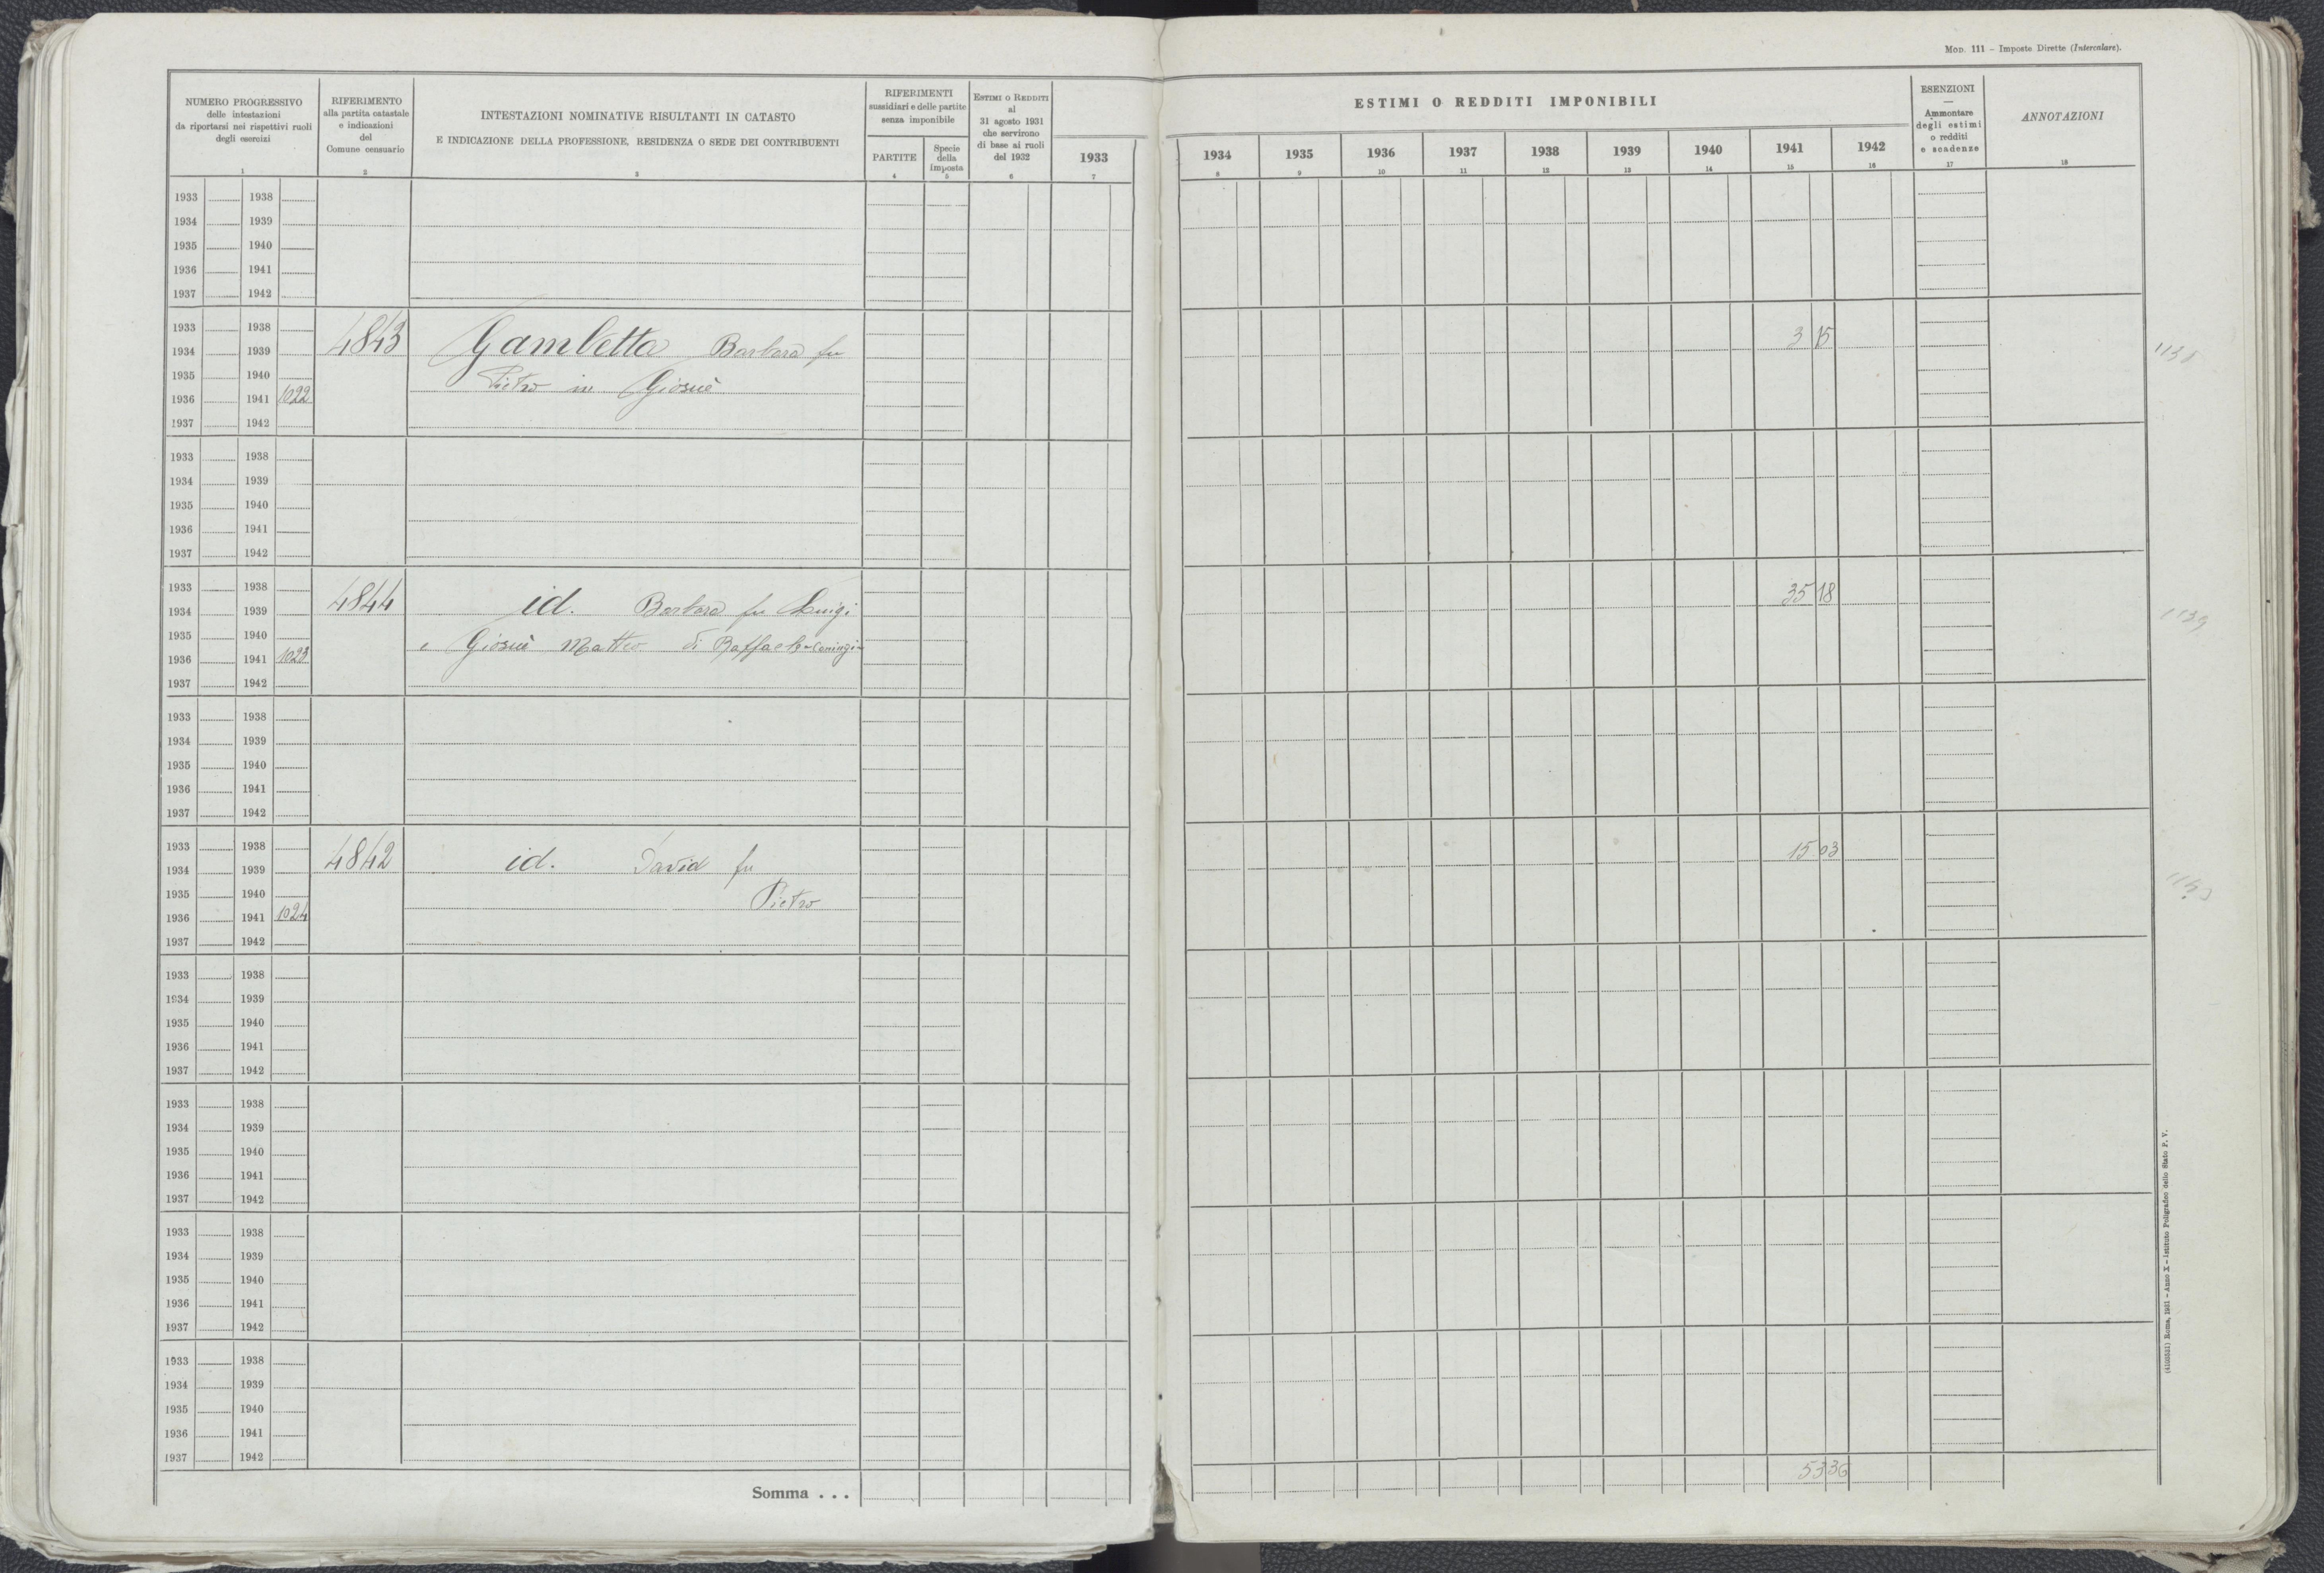 Mod. 111 – Imposte Dirette (Intercalare).
NUMERO PROGRESSIVO
delle intestazioni
da riportarsi nei rispettivi ruoli
degli esercizi
1
RIFERIMENTO
alla partita catastale
e indicazioni
del
Comune censuario
2
INTESTAZIONI NOMINATIVE RISULTANTI IN CATASTO
E INDICAZIONE DELLA PROFESSIONE, RESIDENZA O SEDE DEI CONTRIBUENTI
3
RIFERIMENTI
sussidiari e delle partite
senza imponibile
PARTITE
4
Specie
della
imposta
5
Estimi o Redditi
al
31 agosto 1931
che servirono
di base ai ruoli
del 1932
6
ESTIMI O REDDITI IMPONIBILI
1933 1934 1935 1936 1937 1938 1939 1940 1941 1942
7 8 9 10 11 12 13 14 15 16
ESENZIONI
—
Ammontare
degli estimi
o redditi
e scadenze
17
ANNOTAZIONI
18
1933 1938
1934 1939
1935 1940
1936 1941
1937 1942
1933 1938
1934 1939 4843 Gambetta Barbara fu 3 15
1935 1940 Pietro in Giosuè
1936 1941 1022
1937 1942
1933 1938
1934 1939
1935 1940
1936 1941
1937 1942
1933 1938
1934 1939 4844 id. Barbara fu Luigi 35 18 1139
1935 1940 e Giosuè Matteo di Raffaele-coniugi-
1936 1941 1023
1937 1942
1933 1938
1934 1939
1935 1940
1936 1941
1937 1942
1933 1938
1934 1939 4842 id. David fu 15 03
1935 1940 Pietro
1936 1941 1024
1937 1942
1933 1938
1934 1939
1935 1940
1936 1941
1937 1942
1933 1938
1934 1939
1935 1940
1936 1941
1937 1942
1933 1938
1934 1939
1935 1940
1936 1941
1937 1942
1933 1938
1934 1939
1935 1940
1936 1941
1937 1942
Somma . . . 53 36
(4103531) Roma, 1931 – Anno X – Istituto Poligrafico dello Stato P. V.